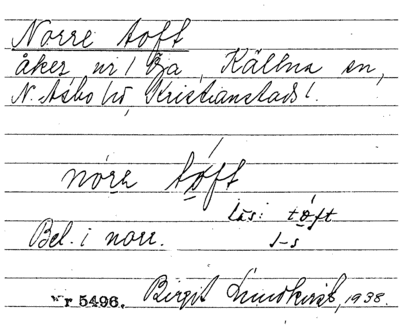 Norre toft
åker, nr 1 Ea, Källna sn,
N. Åsbo hd, Kristianstads l.
nórə tóft
läs: tóft
Bel. i norr.
1-s
Nr 5496. Birgit Lundkvist, 1938.